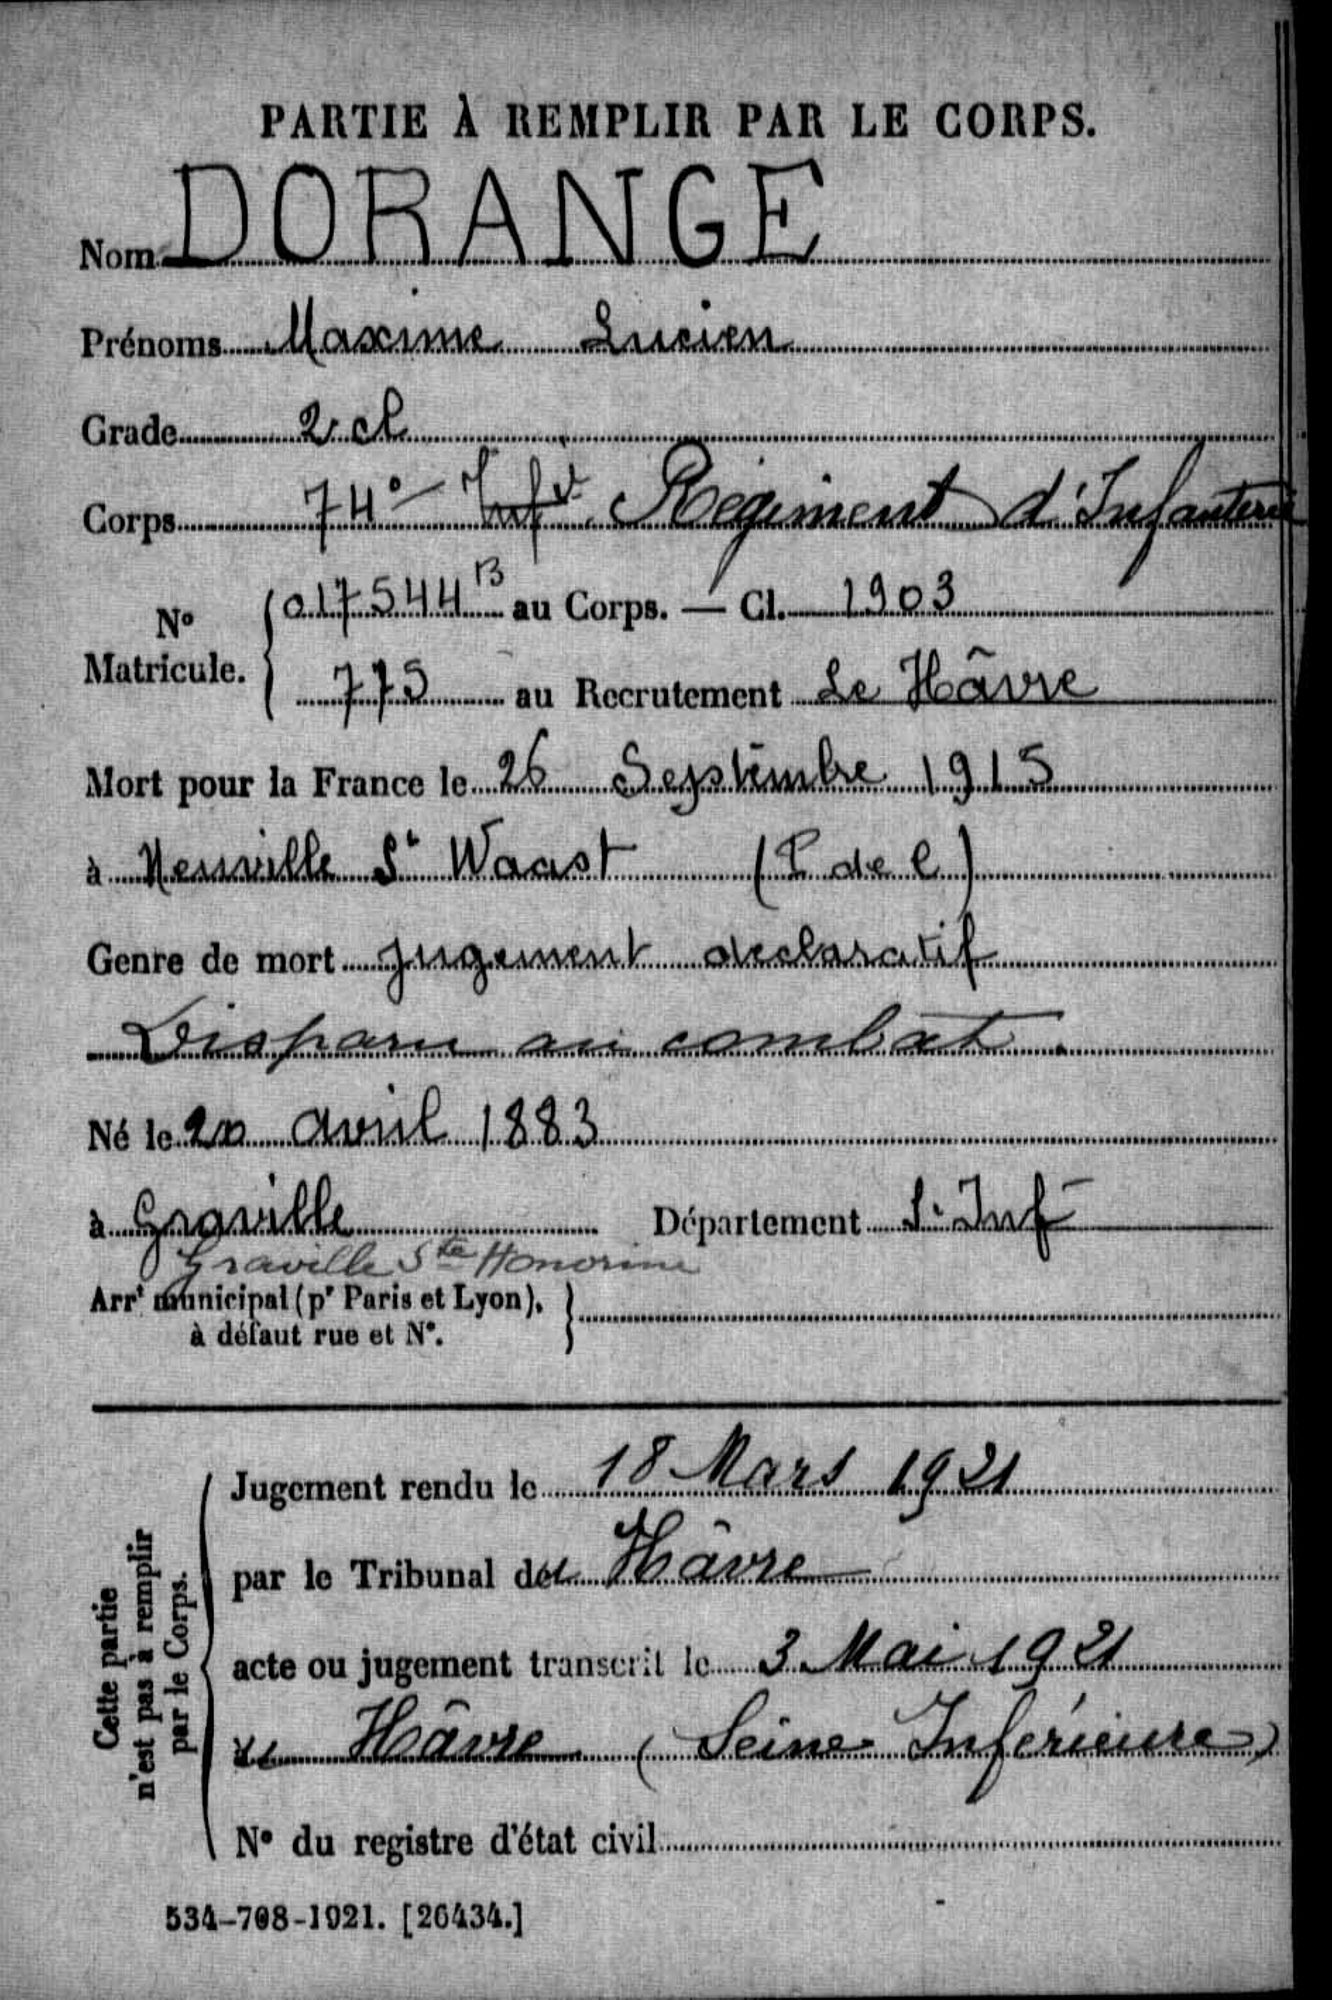 PARTIE À REMPLIR PAR LE CORPS.
Nom DORANGE
Prénoms Maxime Lucien
Grade 2 cl
Corps 74e Inf Régiment d'Infanterie
N° Matricule. 017544 B au Corps. — Cl. 1903
775 au Recrutement Le Hâvre
Mort pour la France le 26 Septembre 1915
à Neuville St Waast (P de C)
Genre de mort jugement declaratif
Disparu au combat.
Né le 20 avril 1883
à Graville Département S. Inf
Graville Ste Honorine
Arrt municipal (pr Paris et Lyon),
à défaut rue et N°.
Cette partie
n'est pas à remplir
par le Corps.
Jugement rendu le 18 Mars 1921
par le Tribunal du Hâvre
acte ou jugement transcrit le 3 Mai 1921
au Hâvre (Seine Inférieure)
N° du registre d'état civil
534-708-1921. [26434.]